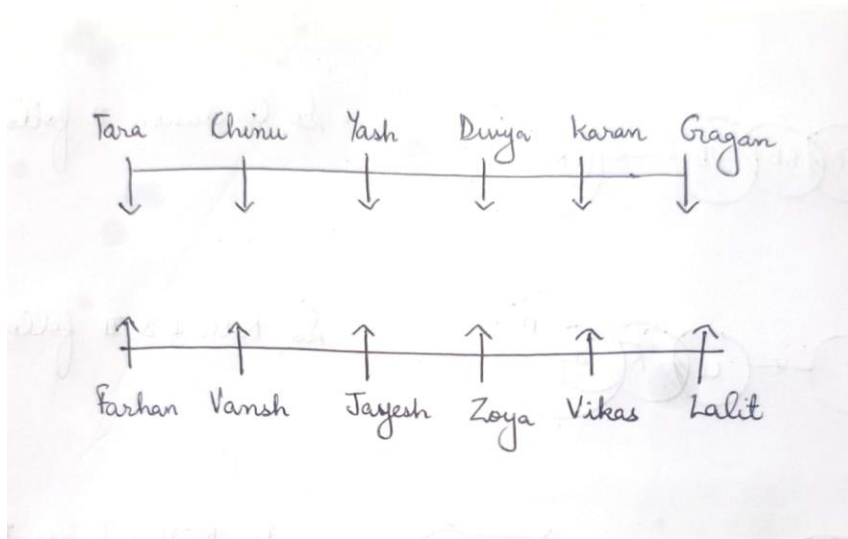 Tara Chinu Yash Divya Karan Gagan
Farhan Vansh Jayesh Zoya Vikas Lalit